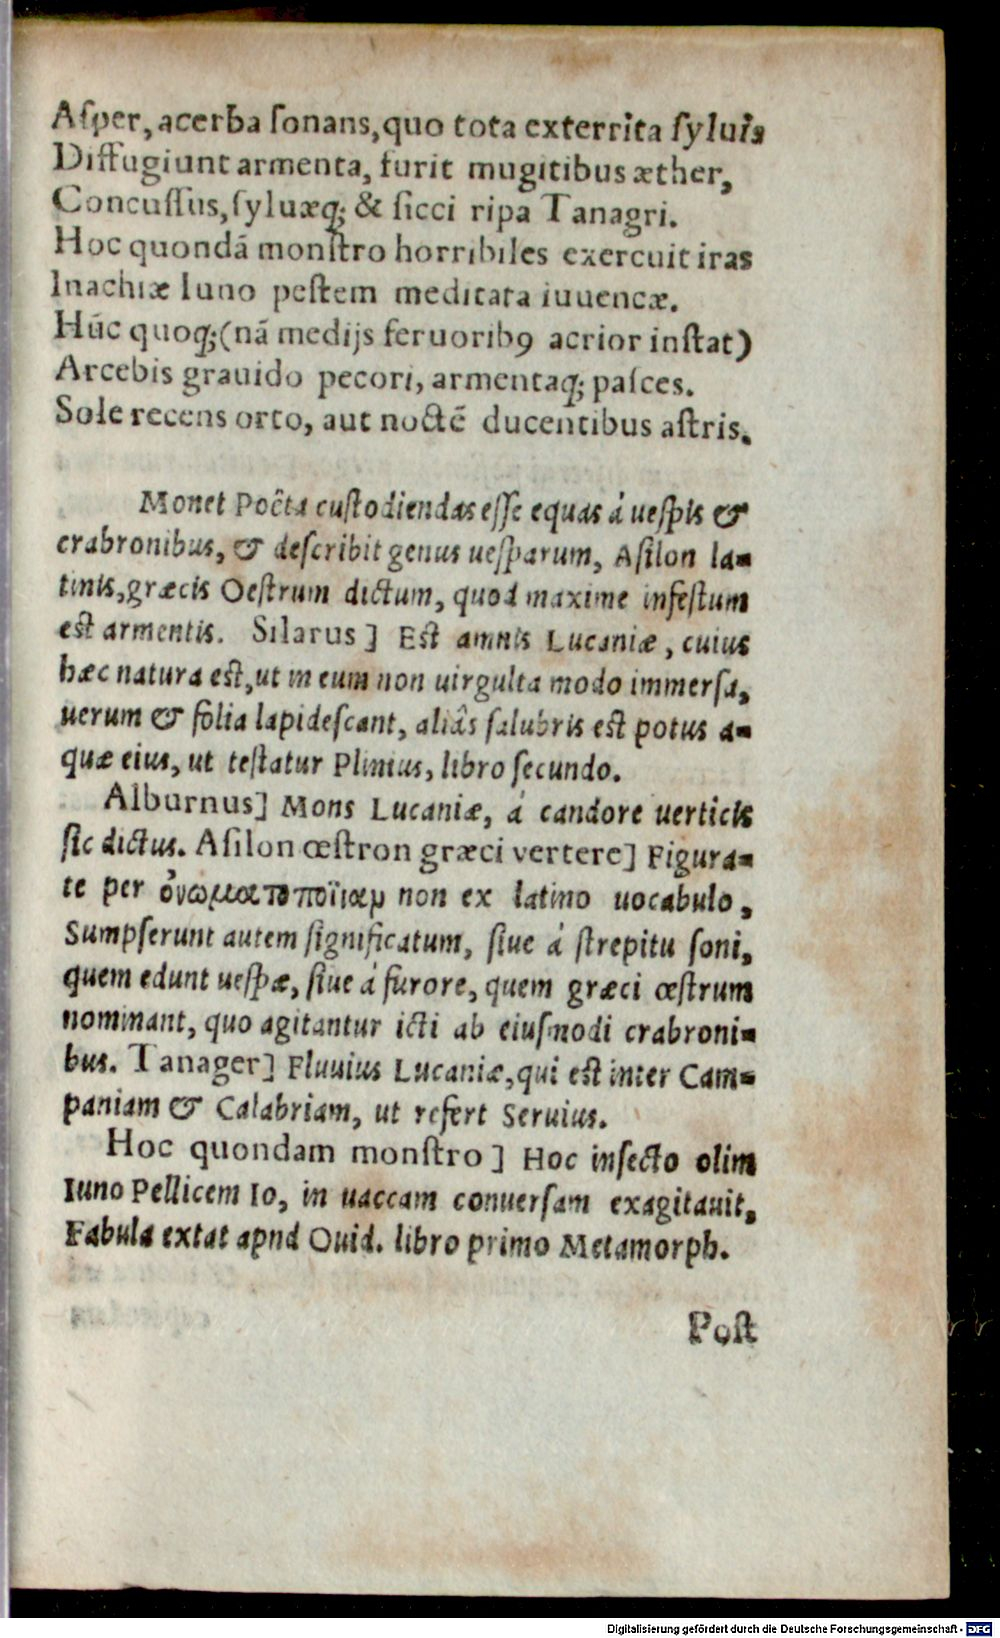 Aſper, acerba ſonans, quo tota exterrita ſyluis
Diffugiunt armenta, furit mugitibus æther,
Concuſſus, ſyluæq; & ſicci ripa Tanagri.
Hoc quondã monſtro horribiles exercuit iras
Inachiæ Iuno peſtem meditata iuuencæ.
Hũc quoq; (nã medijs feruorib9 acrior inſtat)
Arcebis grauido pecori, armentaq; paſces.
Sole recens orto, aut noctẽ ducentibus aſtris.
Monet Poëta cuſtodiendas eſſe equas á ueſpis &
crabronibus, & deſcribit genus ueſparum, Aſilon la-
tinis, græcis Oeſtrum dictum, quod maxime infeſtum
eſt armentis. Silarus] Eſt amnis Lucaniæ, cuius
hæc natura eſt, ut in eum non uirgulta modo immerſa,
uerum & folia lapideſcant, aliâs ſalubris eſt potus a-
quæ eius, ut teſtatur Plinius, libro ſecundo.
Alburnus] Mons Lucaniæ, á candore uerticis
ſic dictus. Aſilon œſtron græci vertere] Figura-
te per ὀνωματοποϊιαμ non ex latino uocabulo,
Sumpſerunt autem ſignificatum, ſiue á ſtrepitu ſoni,
quem edunt ueſpæ, ſiue á furore, quem græci œſtrum
nominant, quo agitantur icti ab eiuſmodi crabroni-
bus. Tanager] Fluuius Lucaniæ, qui eſt inter Cam-
paniam & Calabriam, ut refert Seruius.
Hoc quondam monſtro] Hoc inſecto olim
Iuno Pellicem Io, in uaccam conuerſam exagitauit,
Fabula extat apnd Ouid. libro primo Metamorph.
Poſt
Digitalisierung gefördert durch die Deutsche Forschungsgemeinschaft - DFG